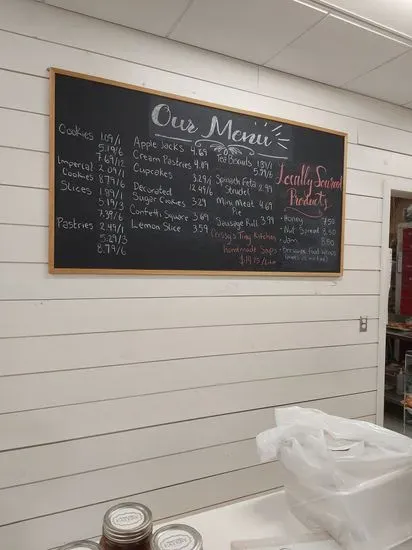 Our Menu
Cookies 1.09/1
5.19/6
7.69/12
Imperial 2.09/1
Cookies 8.79/6
Slices 1.89/1
5.19/3
7.39/6
Pastries 2.49/1
5.29/3
8.79/6
Apple Jacks 4.69
Cream Pastries 4.09
Cupcakes 3.29/1
Decorated 12.49/6
Sugar Cookies 3.29
Confetti Square 3.69
Lemon Slice 3.59
Tea Biscuits 1.39/1
5.79/6
Spinach Feta
Strudel 2.99
Mini Meat 4.69
Pie
Sausage Roll 3.99
Chrissy's Tiny Kitchen
handmade Soups
Locally Sourced
Products
- Honey 7.50
- Nut Spread 8.50
- Jam 8.00
- Beeswax food wraps